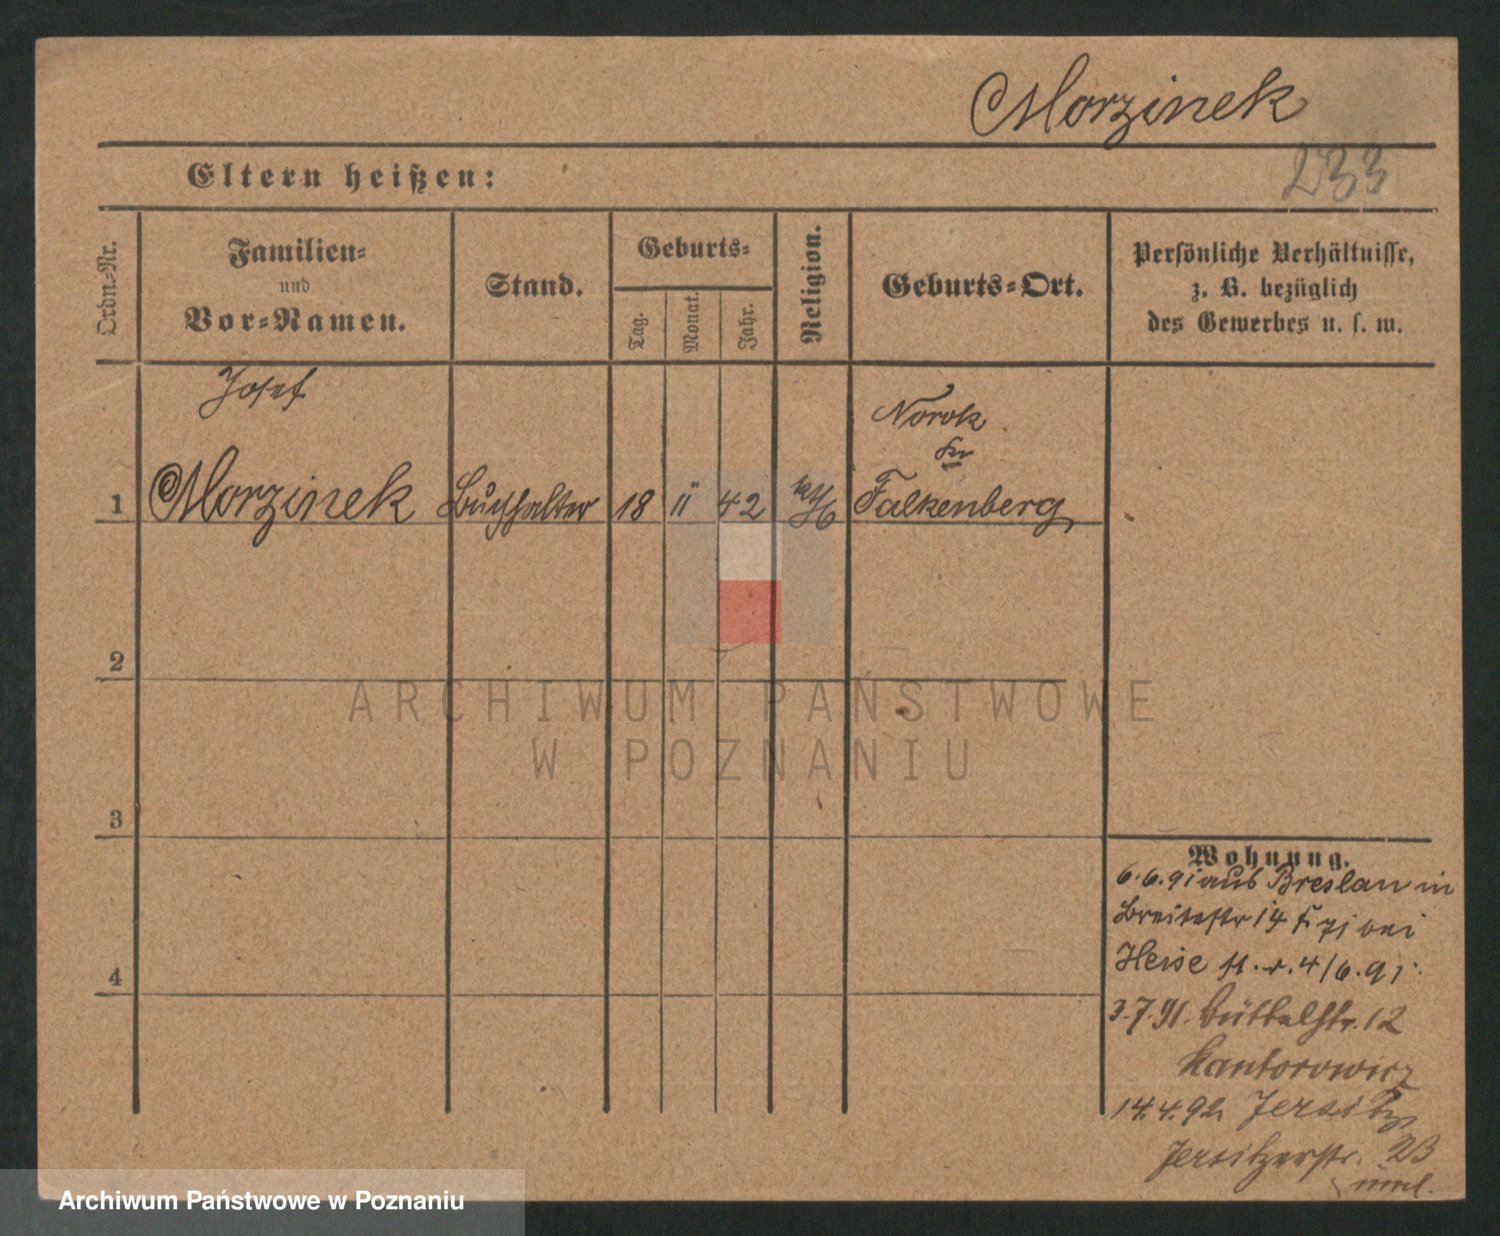 Morzinek
233
Eltern heißen:
Ordn.-Nr.
Familien-
und
Vor-Namen.
Stand.
Geburts-
Tag.
Monat.
Jahr.
Religion.
Geburts-Ort.
Persönliche Verhältnisse,
z. B. bezüglich
des Gewerbes u. s. w.
Josef
Norok
Kr
1 Morzinek Buchhalter 18 11 42 kth Falkenberg
2
3
4
ARCHIWUM PAŃSTWOWE
W POZNANIU
Wohnung.
6.6.91 aus Breslau in
Breitestr 14 bei
Heise 4/6.91.
3.7.91. Büttelstr. 12
Kantorowicz
14.4.92 Jersitz
Jersitzerstr. 23
Archiwum Państwowe w Poznaniu